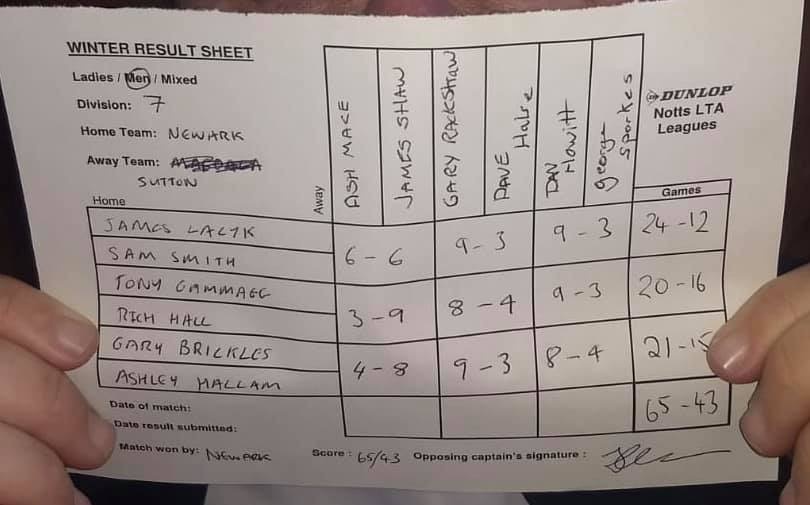 WINTER RESULT SHEET
Ladies / Men / Mixed
Division: 7
Home Team: NEWARK
Away Team:
SUTTON
Home
Away
ASH MACE
JAMES SHAW
GARY RACKSTRAW
DAVE Halse
DAN Howitt
george Sparkes
DUNLOP
Notts LTA
Leagues
Games
JAMES LACYK
SAM SMITH
6 - 6 9 - 3 9 - 3 24 - 12
TONY GAMMAGE
RICH HALL
3 - 9 8 - 4 9 - 3 20 - 16
GARY BRICKLES
ASHLEY HALLAM
4 - 8 9 - 3 8 - 4 21 - 15
65 - 43
Date of match:
Date result submitted:
Match won by: NEWARK Score: 65/43 Opposing captain's signature: